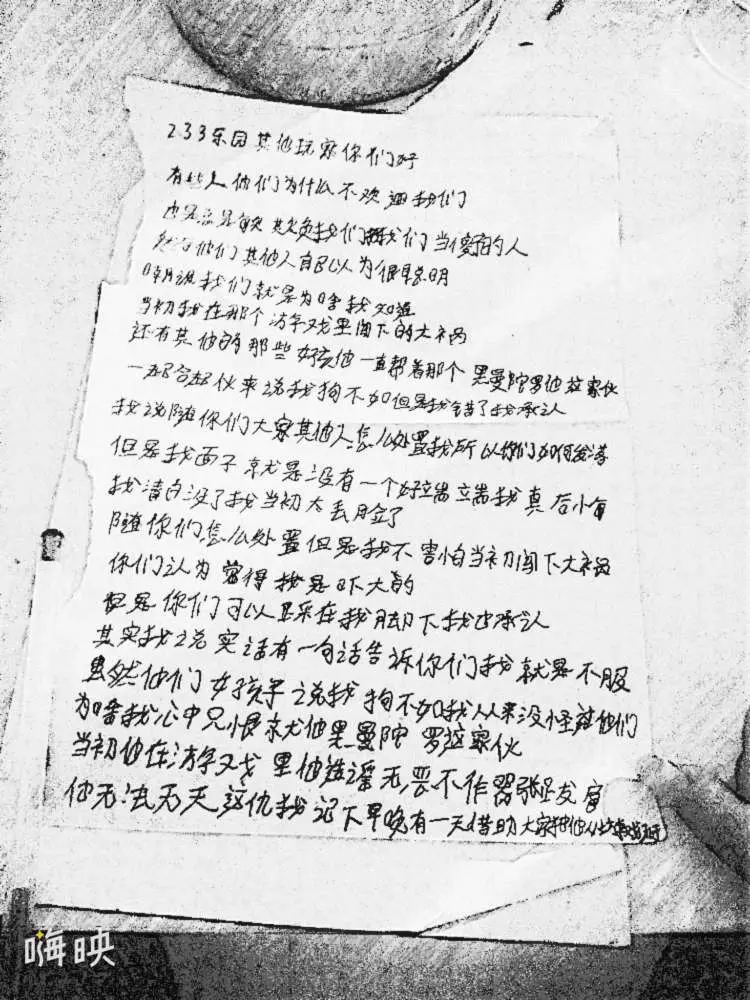 233乐园其他玩家你们好
有些人他们为什么不欢迎我们
也是总是 欺负我们 我们当傻 的人
他们其他人自己以为很聪明
说我们就是为啥我知道
当初我在那个游字戏里闯下的大祸
还有其他的那些好 他一直帮着那个黑曼陀罗他这家伙
一起合起伙来说我狗不如但是我错了我承认
我说随你们大家其他人怎么处置我所以你们如何
但是我面子就是没有一个好端端我真后
我清白没了我当初太丢脸了
随你们怎么处置但是我不害怕当初闯下大祸
你们认为觉得我是吓大的
但是你们可以踩在我脚下我也承认
其实我说实话有一句话告诉你们我就是不服
虽然他们女孩子说我狗不如我从来没怪 他们
为啥我心中只恨 他黑曼陀罗这家伙
当初他在游字戏里他造谣无恶不作嚣张
他无法无天这仇我记下早晚有一天借助大家把他从
嗨映